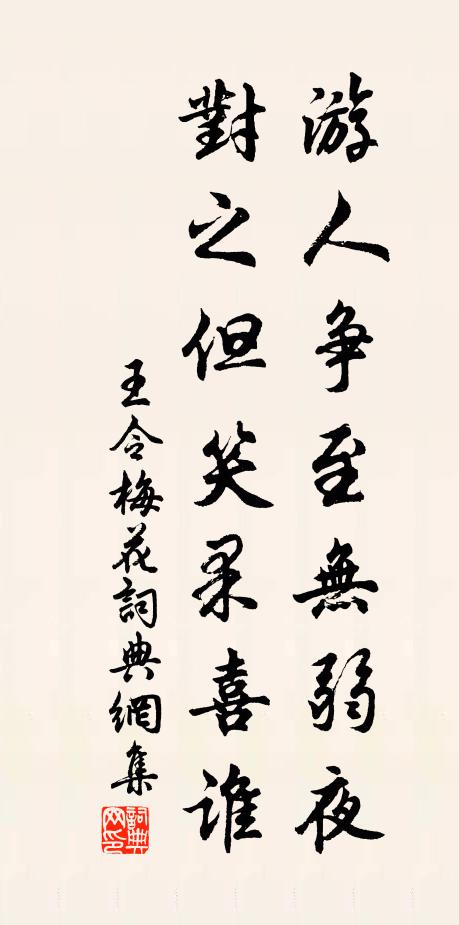 游人争至無弱夜
對之但笑果喜誰
王令梅花詞典網集
詞典網印